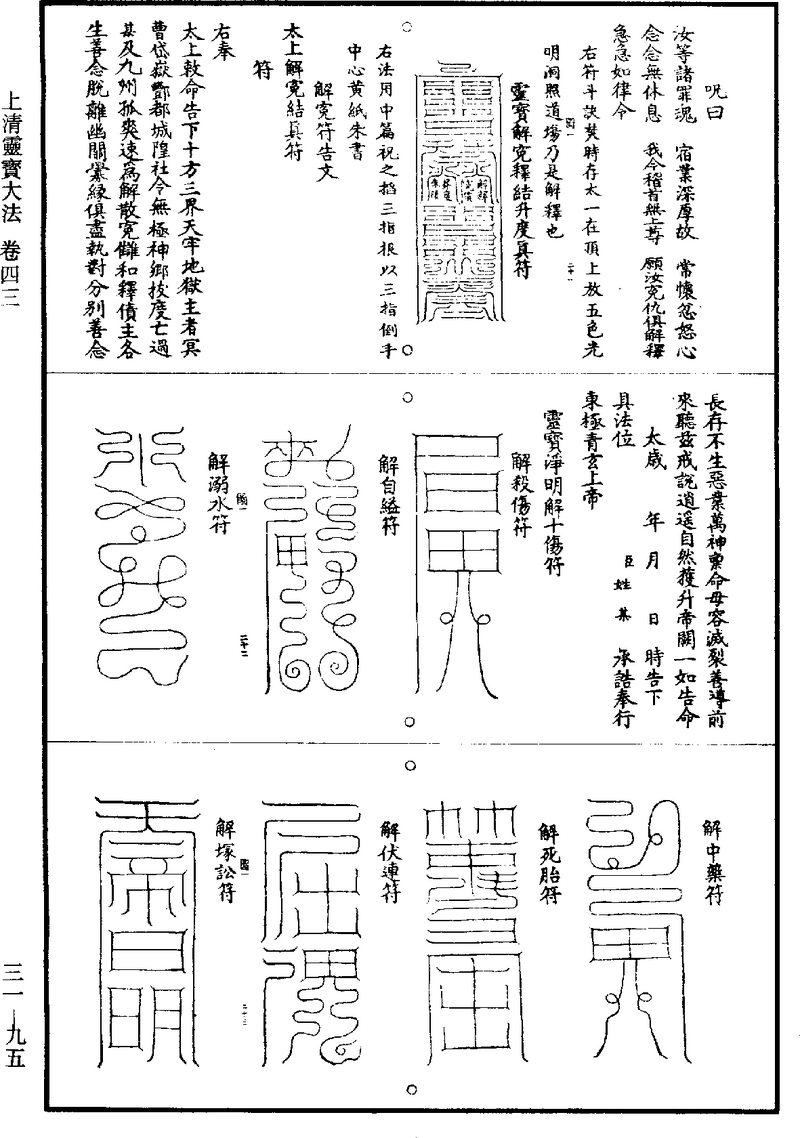 上清靈寳大法 卷四三
三一—九五
咒曰
汝等諸罪魂 宿業深厚故 常懷忿怒心
念念無休息 我今稽首無上尊 願汝冤仇俱解釋
急急如律令
右符斗訣焚時存太一在頂上放五色光
明洞照道場乃是解釋也
靈寳解冤釋結升度真符
右法用中篇祝之掐三指根以三指倒手
中心黄紙朱書
解冤符告文
太上解冤結真符
符
右奉
太上敕命告下十方三界天牢地獄主者冥
曹岱嶽酆都城隍社令無極神鄉拔度亡過
某及九州孤爽速爲解散冤讎和釋債主各
生善念脱離幽關業緣俱盡執對分别善念
長存不生惡業萬神稟命毋容滅裂善導前
來聽兹戒説逍遥自然獲升帝闕一如告命
太歲 年 月 日 時告下
具法位 臣姓某 承誥奉行
東極青玄上帝
靈寳淨明解十傷符
解殺傷符
解自縊符
解溺水符
解中藥符
解死胎符
解伏連符
解塚訟符